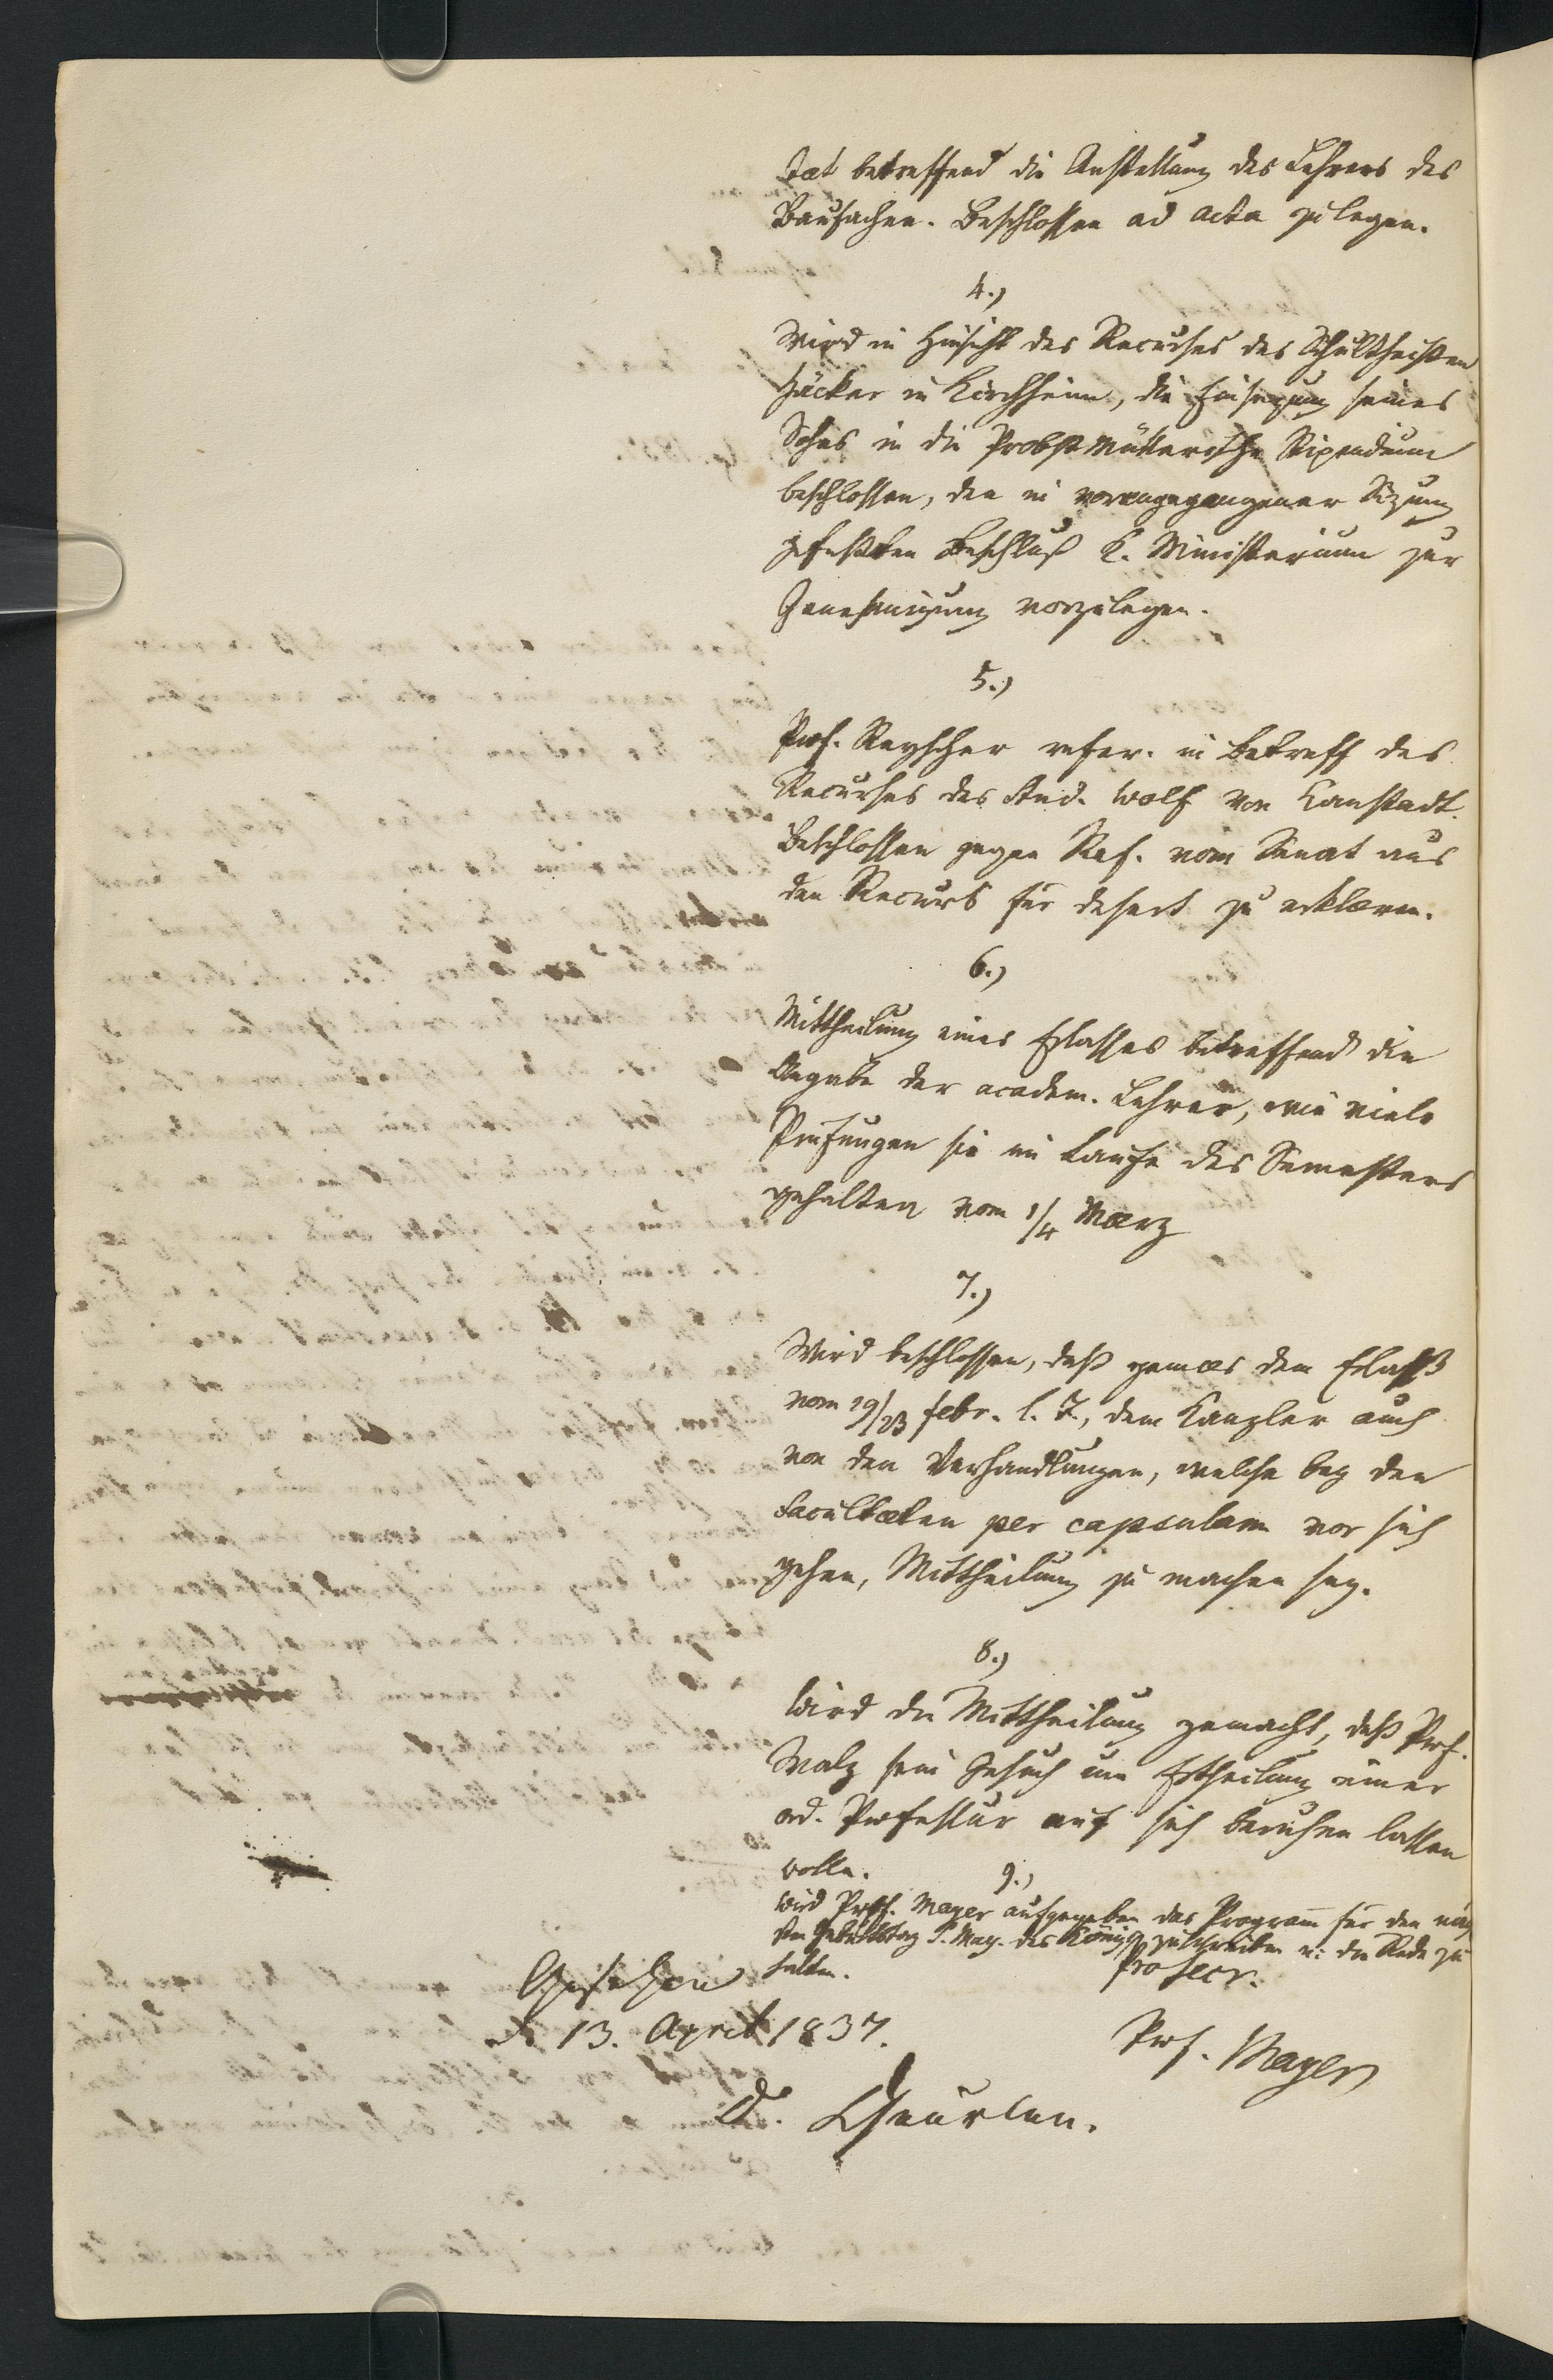 tæt betreffend die Anstellung des Lehrers des
Baufaches. Beschlossen ad acta zu legen.
4.)
Wird in Hinsicht des Recurses des Schultheißen
Häcker in Kirchheim, die Einsezung seines
Sohns in die Probst Müllerische Stipendium
beschlossen, den in vorangegangener Sizung
gefaßten Beschluß K. Ministerium zur
Genehmigung vorzulegen.
5.)
Prof. Reyscher refer. in Betreff des
Recurses des Stud. Wolf von Kanstadt.
Beschlossen gegen Ref. vom Senat aus
den Recurs für desert zu erklæren.
6.)
Mittheilung eines Erlasses betreffend die
Angabe der academ. Lehrer, wie viele
Prüfungen sie im Laufe des Semesters
gehalten vom 1/4 Mærz
7.)
Wird beschlossen, daß gemæs dem Erlaß
vom 19/23 Febr. l. J., dem Kanzler auch
von den Verhandlungen, welche bey den
Facultæten per capsulam vor sich
gehen, Mittheilung zu machen sey.
8.)
Wird die Mittheilung gemacht, daß Prof.
Walz sein Gesuch um Ertheilung einer
ord. Professur auf sich beruhen lassen
wolle.
9.)
Wird Prof. Mayer aufgegeben das Program̅ für den näch
sten Geburtstag S. May. des Königs zu schreiben u. die Rede zu
halten.
Pro secr.
Prof. Mayer
Gesehen
d. 13. April 1837.
D. Scheurlen.